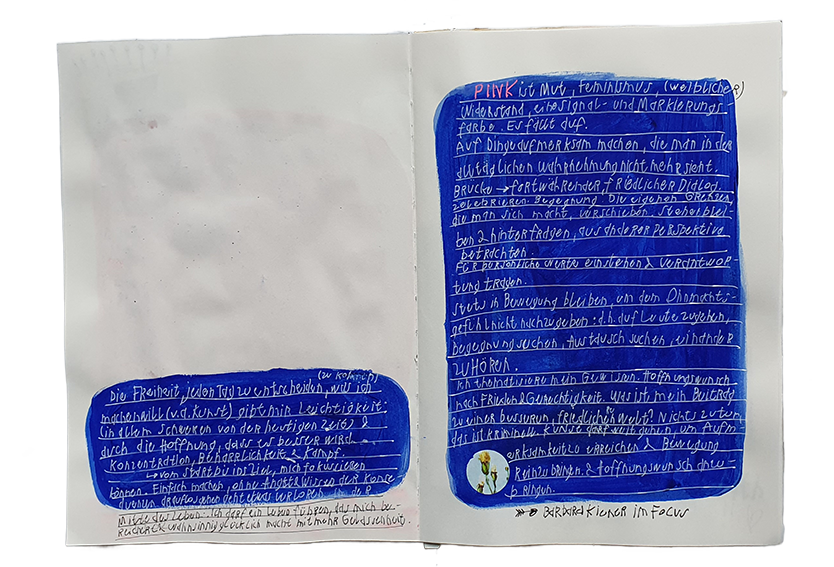 (zu Kolarich)
Die Freiheit, jeden Tag zu entscheiden, was ich
machen will (v.a. Kunst) gibt mir Leichtigkeit.
(in allem Schweren von der heutigen Zeit) &
durch die Hoffnung, dass es besser wird.
Konzentration, Beharrlichkeit & Kampf.
↳ vom Start bis ins Ziel, mich fokussieren
können. Einfach machen, ohne Angst & Wissen der Konse
quenzen drauflosgehen geht etwas verloren in der
Mitte des Leben. Ich darf ein Leben führen, das mich be-
reichert & wahnsinnig glücklich macht mit mehr Gelassenheit.
PINK ist Mut, Feminismus, (weiblicher)
Widerstand, eine Signal- und Markierungs-
farbe. Es fällt auf.
Auf Dinge aufmerksam machen, die man in der
alltäglichen Wahrnehmung nicht mehr sieht.
Brücke → fortwährender, friedlicher Dialog.
zelebrieren. Begegnung. Die eigenen Grenzen,
die man sich macht, verschieben. Stehen blei-
ben & hinterfragen, aus anderer Perspektive
betrachten.
Für persönliche Werte einstehen & Verantwor-
tung tragen.
Stets in Bewegung bleiben, um dem Ohnmachts-
gefühl nicht nachzugeben: d.h. auf Leute zugehen,
Begegnung suchen, Austausch suchen, einander
zuhören.
Ich thematisiere mein Gewissen. Hoffnungswunsch
nach Frieden & Gerechtigkeit. Was ist mein Beitrag
zu einer besseren friedlichen Welt? Nichts zu tun
das ist kriminell. Kunst darf weh gehen, um Aufm-
erksamkeit zu erreichen & Bewegung
reinzubringen & Hoffnungswunsch
bringen.
Barbara Kiener im Focus